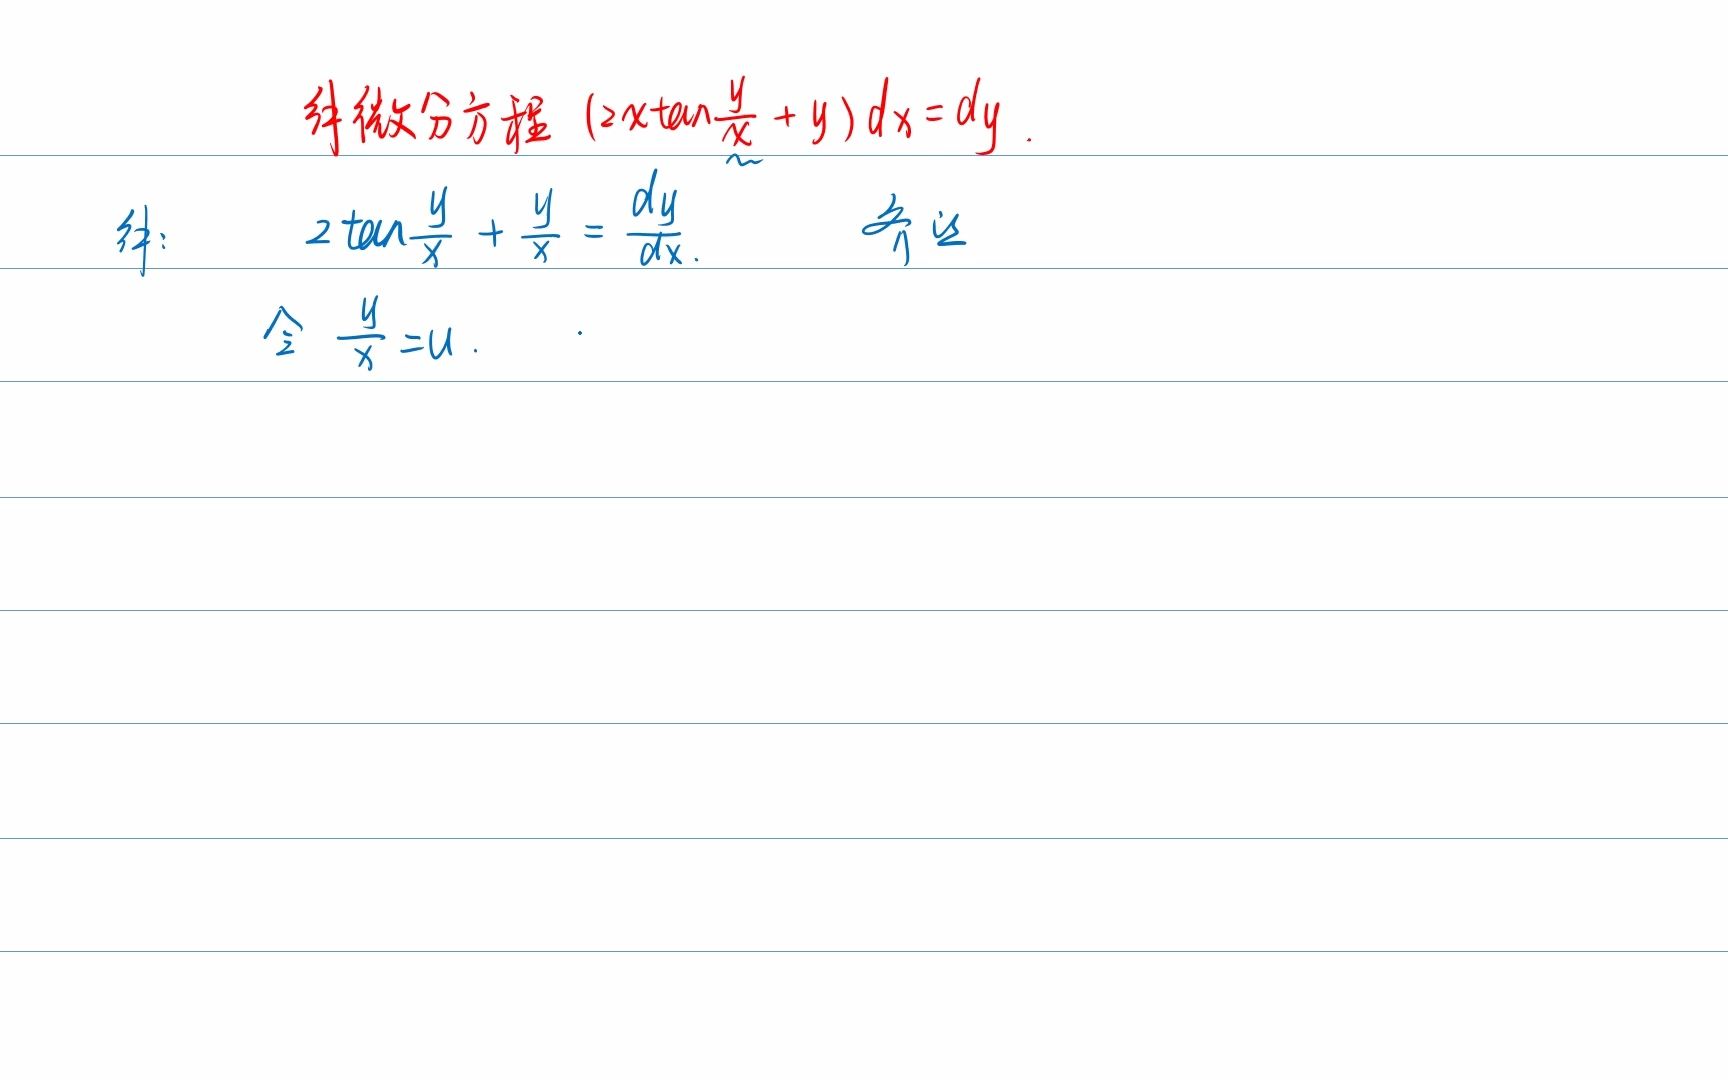 解微分方程 (2x tan y/x + y) dx = dy .
解: 2 tan y/x + y/x = dy/dx . 齐次
令 y/x = u .